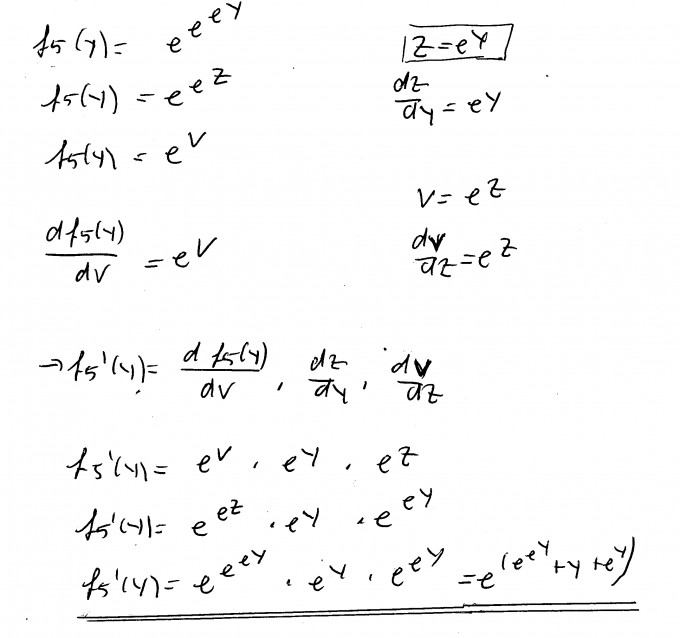 f5(y) = e^e^e^y
z = e^y
f5(y) = e^e^z
dz/dy = e^y
f5(y) = e^v
v = e^z
df5(y)/dv = e^v
dv/dz = e^z
→ f5'(y) = d f5(y)/dv . dz/dy . dv/dz
f5'(y) = e^v . e^y . e^z
f5'(y) = e^e^z . e^y . e^e^y
f5'(y) = e^e^e^y . e^y . e^e^y = e^(e^e^y + y + e^y)